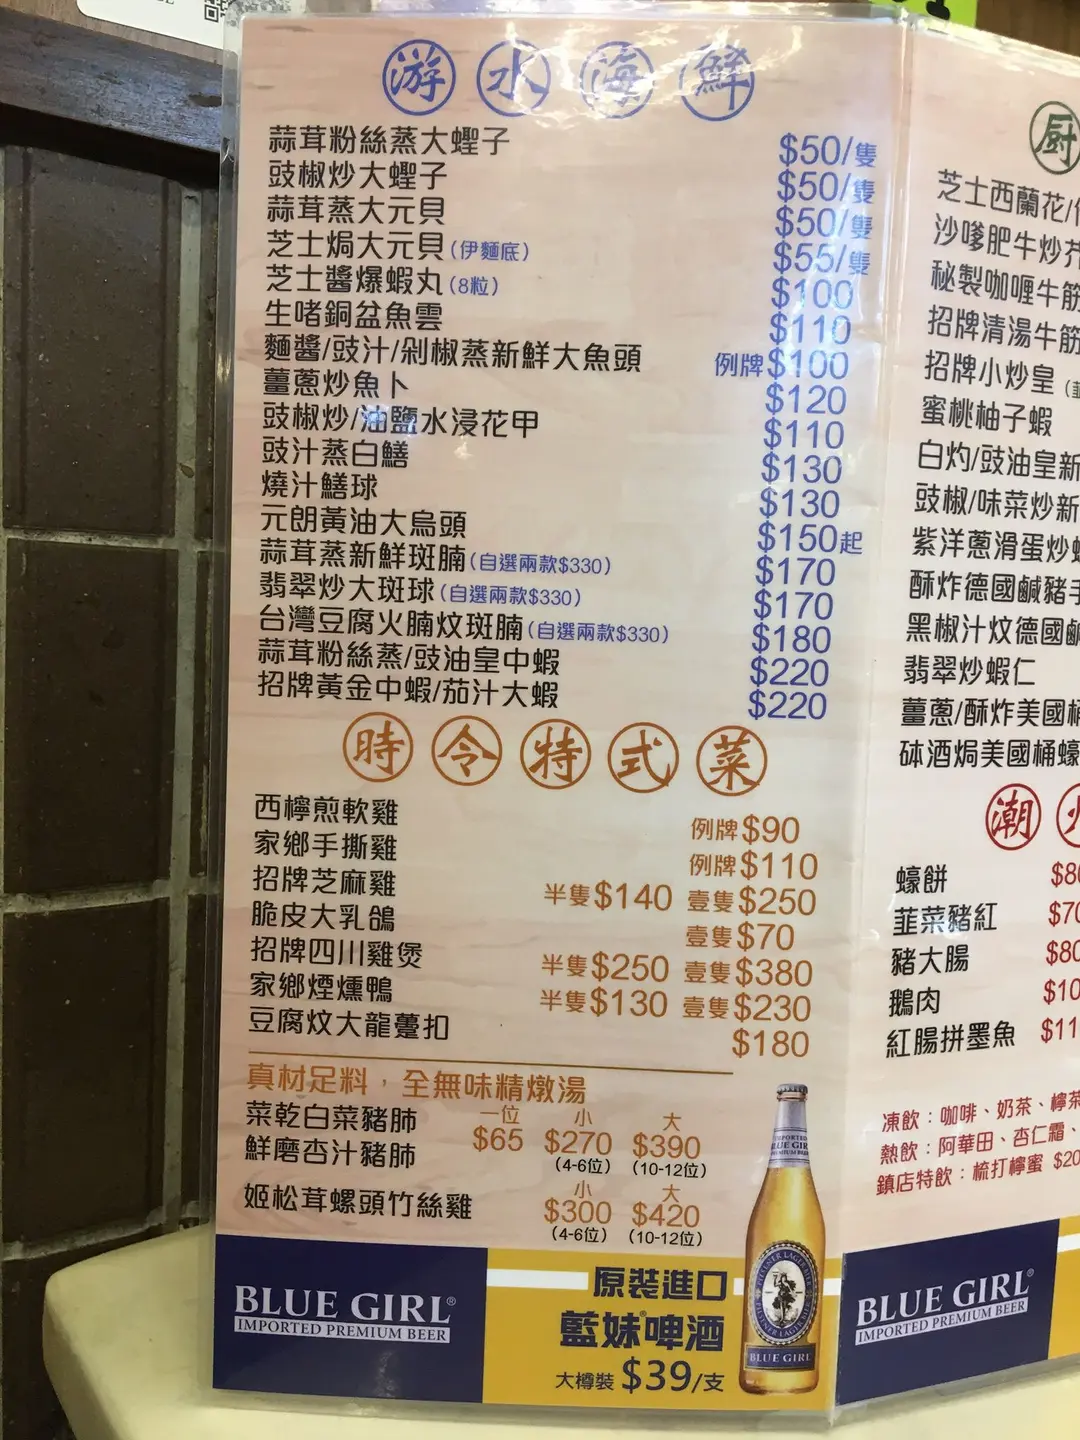 游水海鮮
蒜茸粉絲蒸大蟶子 $50/隻
豉椒炒大蟶子 $50/隻
蒜茸蒸大元貝 $50/隻
芝士焗大元貝(伊麵底) $55/隻
芝士醬爆蝦丸(8粒) $100
生啫銅盆魚雲 $110
麵醬/豉汁/剁椒蒸新鮮大魚頭 例牌$100
薑蔥炒魚卜 $120
豉椒炒/油鹽水浸花甲 $110
豉汁蒸白鱔 $130
燒汁鱔球 $130
元朗黃油大烏頭 $150起
蒜茸蒸新鮮斑腩(自選兩款$330) $170
翡翠炒大斑球(自選兩款$330) $170
台灣豆腐火腩炆斑腩(自選兩款$330) $180
蒜茸粉絲蒸/豉油皇中蝦 $220
招牌黃金中蝦/茄汁大蝦 $220
時令特式菜
西檸煎軟雞 例牌$90
家鄉手撕雞 例牌$110
招牌芝麻雞 半隻$140 壹隻$250
脆皮大乳鴿 壹隻$70
招牌四川雞煲 半隻$250 壹隻$380
家鄉煙燻鴨 半隻$130 壹隻$230
豆腐炆大龍躉扣 $180
真材足料，全無味精燉湯
一位 小 大
菜乾白菜豬肺
鮮磨杏汁豬肺
$65 $270 $390
(4-6位) (10-12位)
小 大
姬松茸螺頭竹絲雞 $300 $420
(4-6位) (10-12位)
BLUE GIRL®
IMPORTED PREMIUM BEER
原裝進口
藍妹®啤酒
大樽裝 $39/支
BLUE GIRL
廚
芝士西蘭花/
沙嗲肥牛炒
秘製咖喱牛筋
招牌清湯牛筋
招牌小炒皇
蜜桃柚子蝦
白灼/豉油皇新
豉椒/味菜炒新
紫洋蔥滑蛋炒
酥炸德國鹹豬手
黑椒汁炆德國鹹
翡翠炒蝦仁
薑蔥/酥炸美國桶
砵酒焗美國桶蠔
潮
蠔餅
韮菜豬紅
豬大腸
鵝肉
紅腸拼墨魚
凍飲：咖啡、奶茶、檸茶
熱飲：阿華田、杏仁霜、
鎮店特飲：梳打檸蜜 $20
BLUE GIRL®
IMPORTED PREMIUM BEER